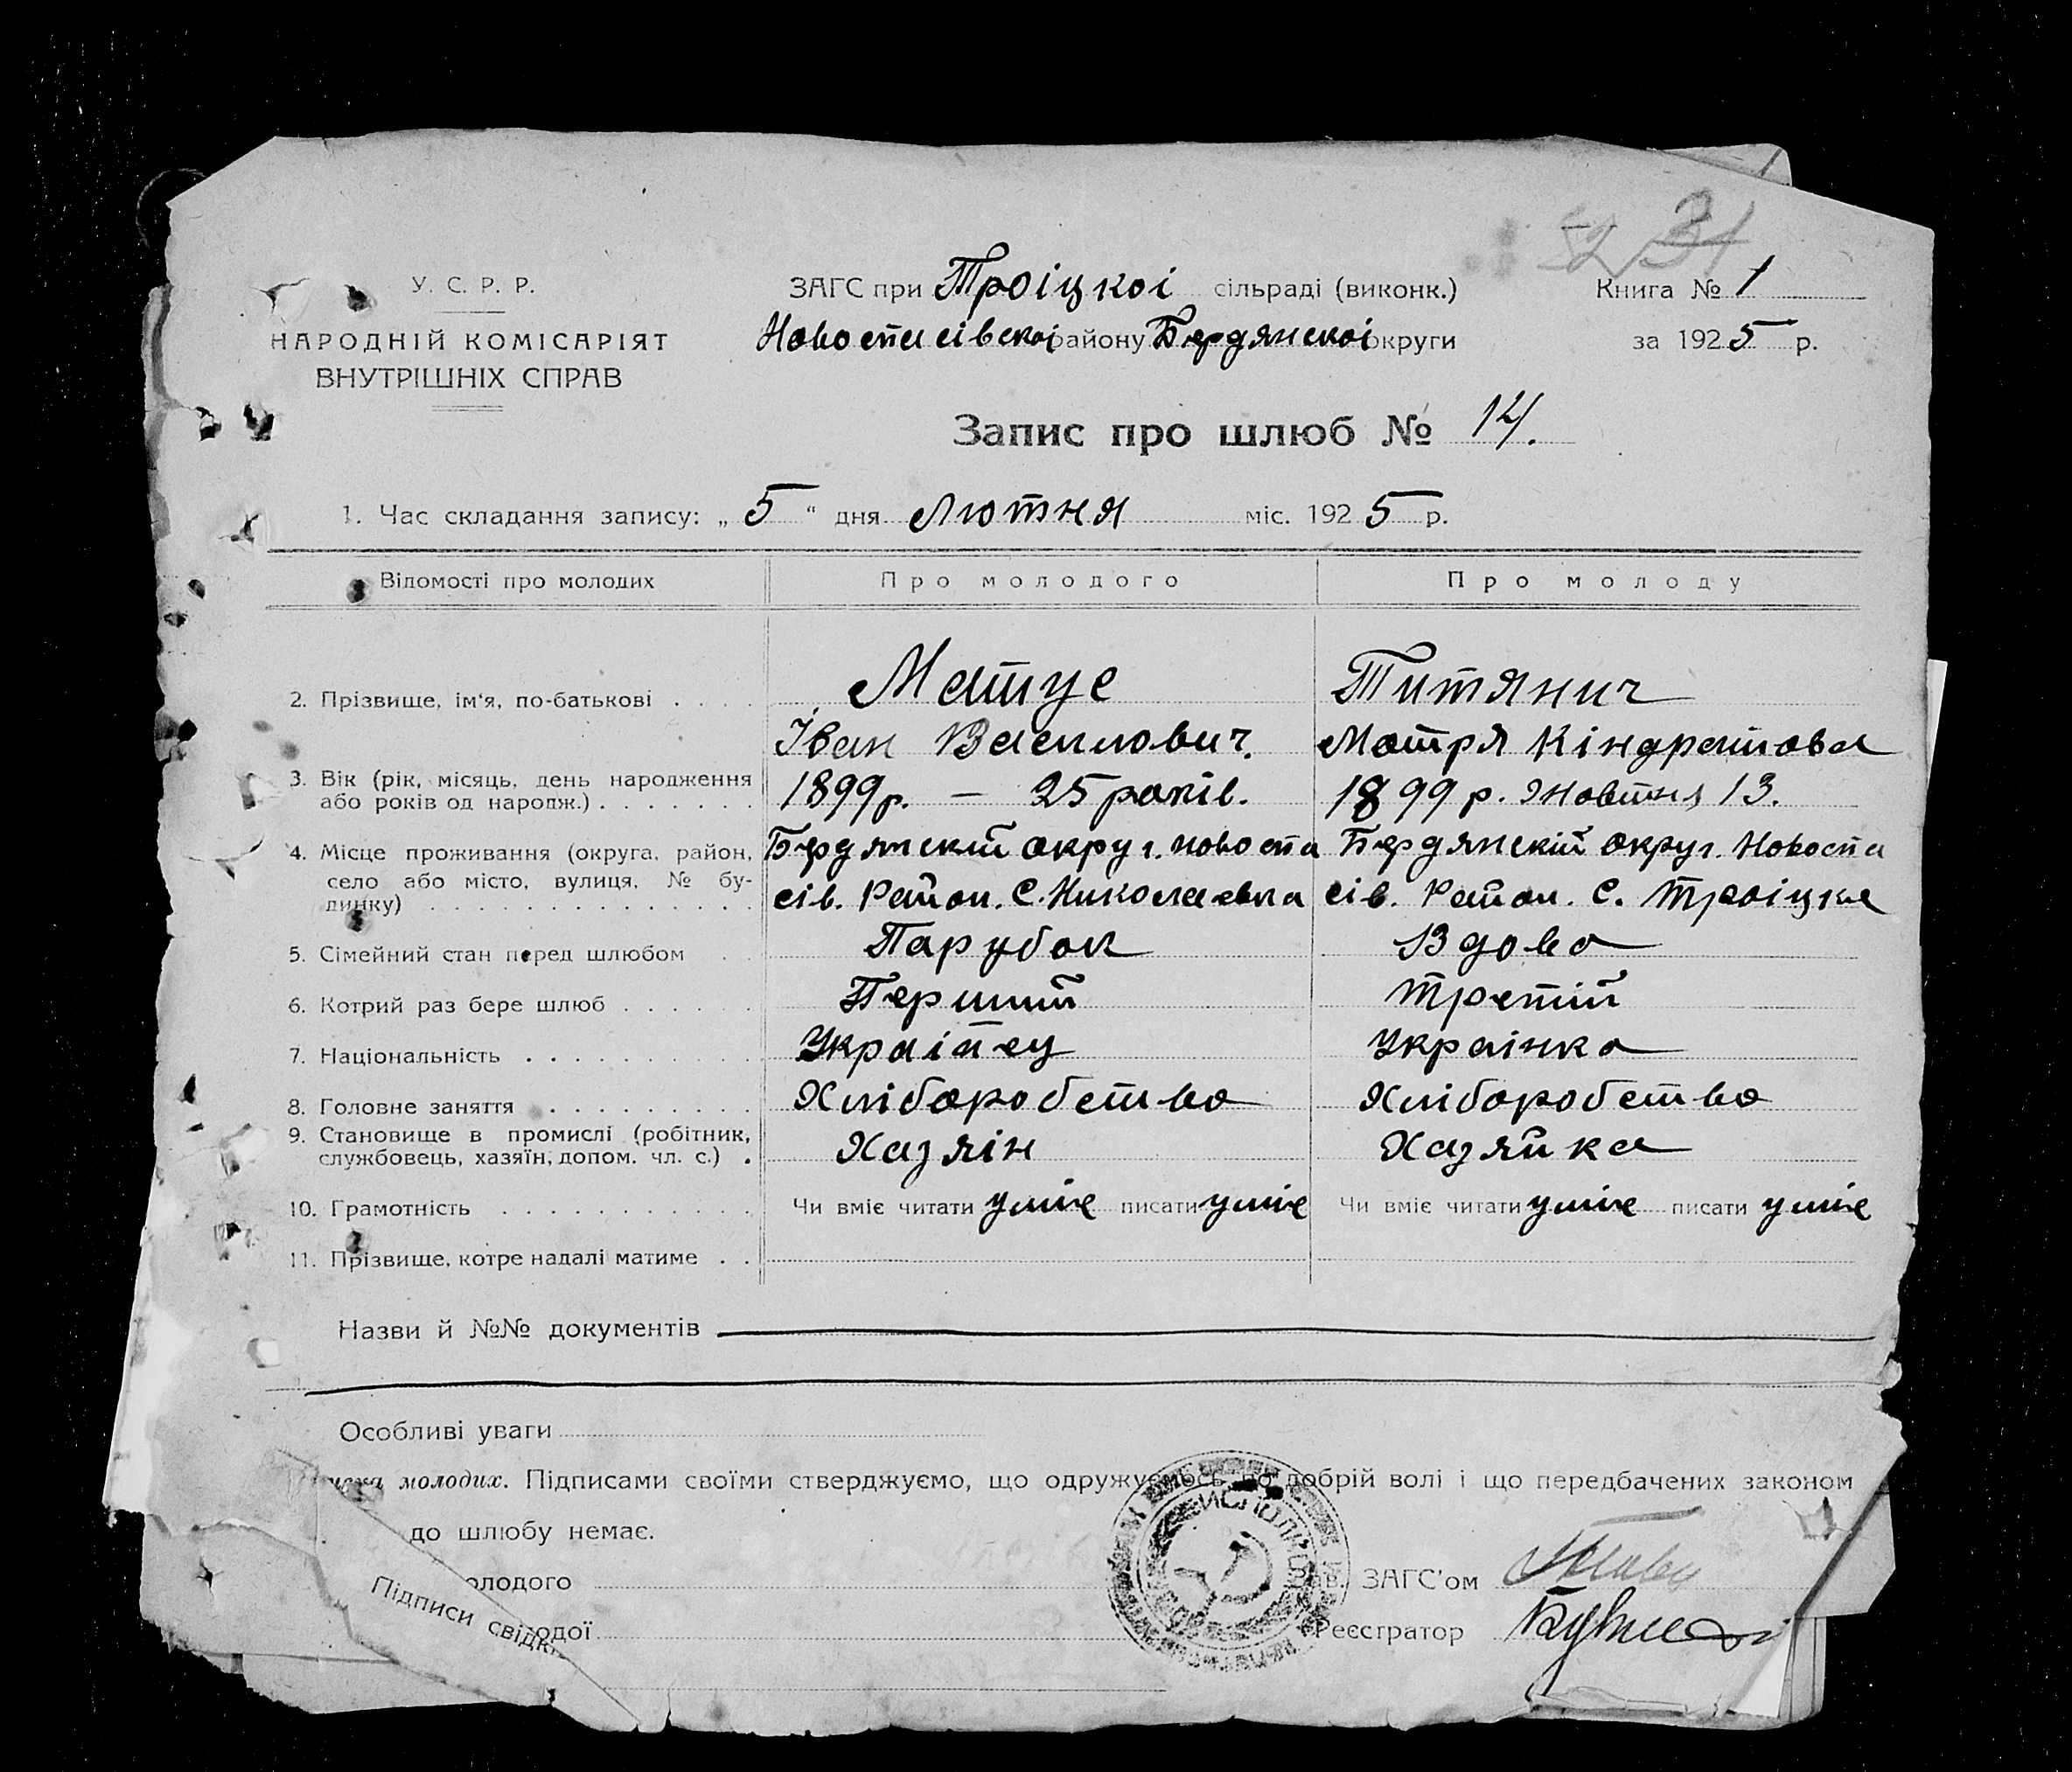 52 31
У. С. Р. Р.
НАРОДНІЙ КОМІСАРІЯТ
ВНУТРІШНІХ СПРАВ
ЗАГС при Троіцкоі сільраді (виконк.)
Новоспасівскоі району Бердянскоі округи
Книга № 1
за 1925 р.
Запис про шлюб № 14.
1. Час складання запису: „ 5 “ дня Лютня міс. 1925 р.
Відомості про молодих Про молодого Про молоду
2. Прізвище, ім'я, по-батькові . . . . Матус Титянич
Іван Василович. Мотря Кіндратова
3. Вік (рік, місяць, день народження
або років од народж.) . . . . . . . 1899р. — 25 років. 1899 р. Жовтня 13.
4. Місце проживання (округа, район, Бердянский округ. Новоспа Бердянскій округ. Новоспа
село або місто, вулиця, № бу-
динку) . . . . . . . . . . . . . . сів. Район. С. Николаевка сів. Район. С. Троіцке
5. Сімейний стан перед шлюбом . . Парубок Вдова
6. Котрий раз бере шлюб . . . . . . Перший Третій
7. Національність . . . . . . . . . . Украінец Украінка
8. Головне заняття . . . . . . . . . Хліборобство Хліборобство
9. Становище в промислі (робітник,
службовець, хазяїн, допом. чл. с.) . Хазяін Хазяйка
10. Грамотність . . . . . . . . . . . Чи вміє читати уміє писати уміє Чи вміє читати уміє писати уміє
11. Прізвище, котре надалі матиме . .
Назви й №№ документів
Особливі уваги
молодих. Підписами своїми стверджуємо, що одружуємось по добрій волі і що передбачених законом
до шлюбу немає.
олодого
Зав. ЗАГС'ом
Підписи свідк
одої
Реєстратор